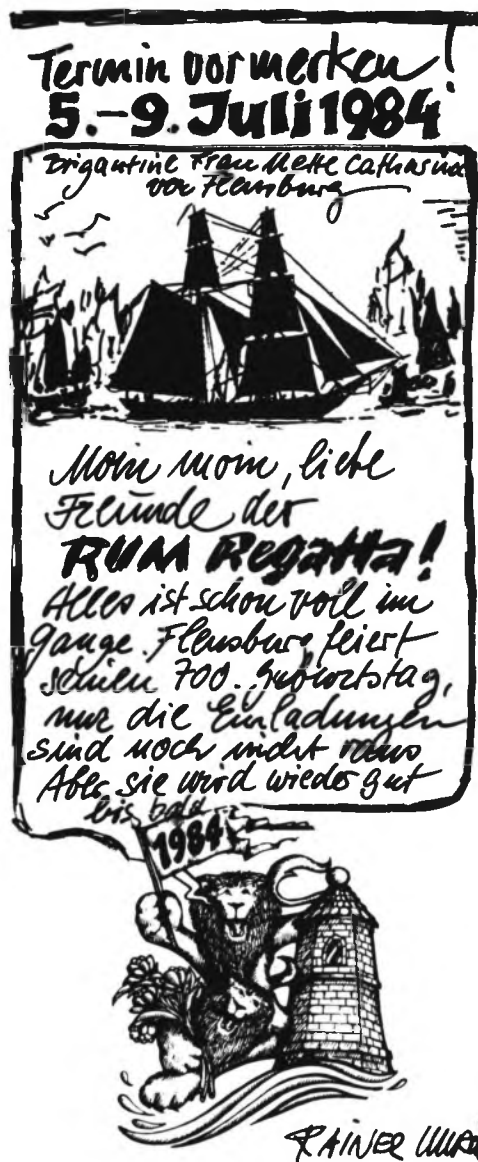 Termin vormerken!
5.–9. Juli 1984
Brigantine Frau Mette Catharina
von Flensburg
Moin moin, liebe
Freunde der
RUM Regatta!
Alles ist schon voll im
Gange. Flensburg feiert
seinen 700. Geburtstag,
nur die Einladungen
sind noch nicht raus
Aber sie wird wieder gut
bis bald
1984
RAINER